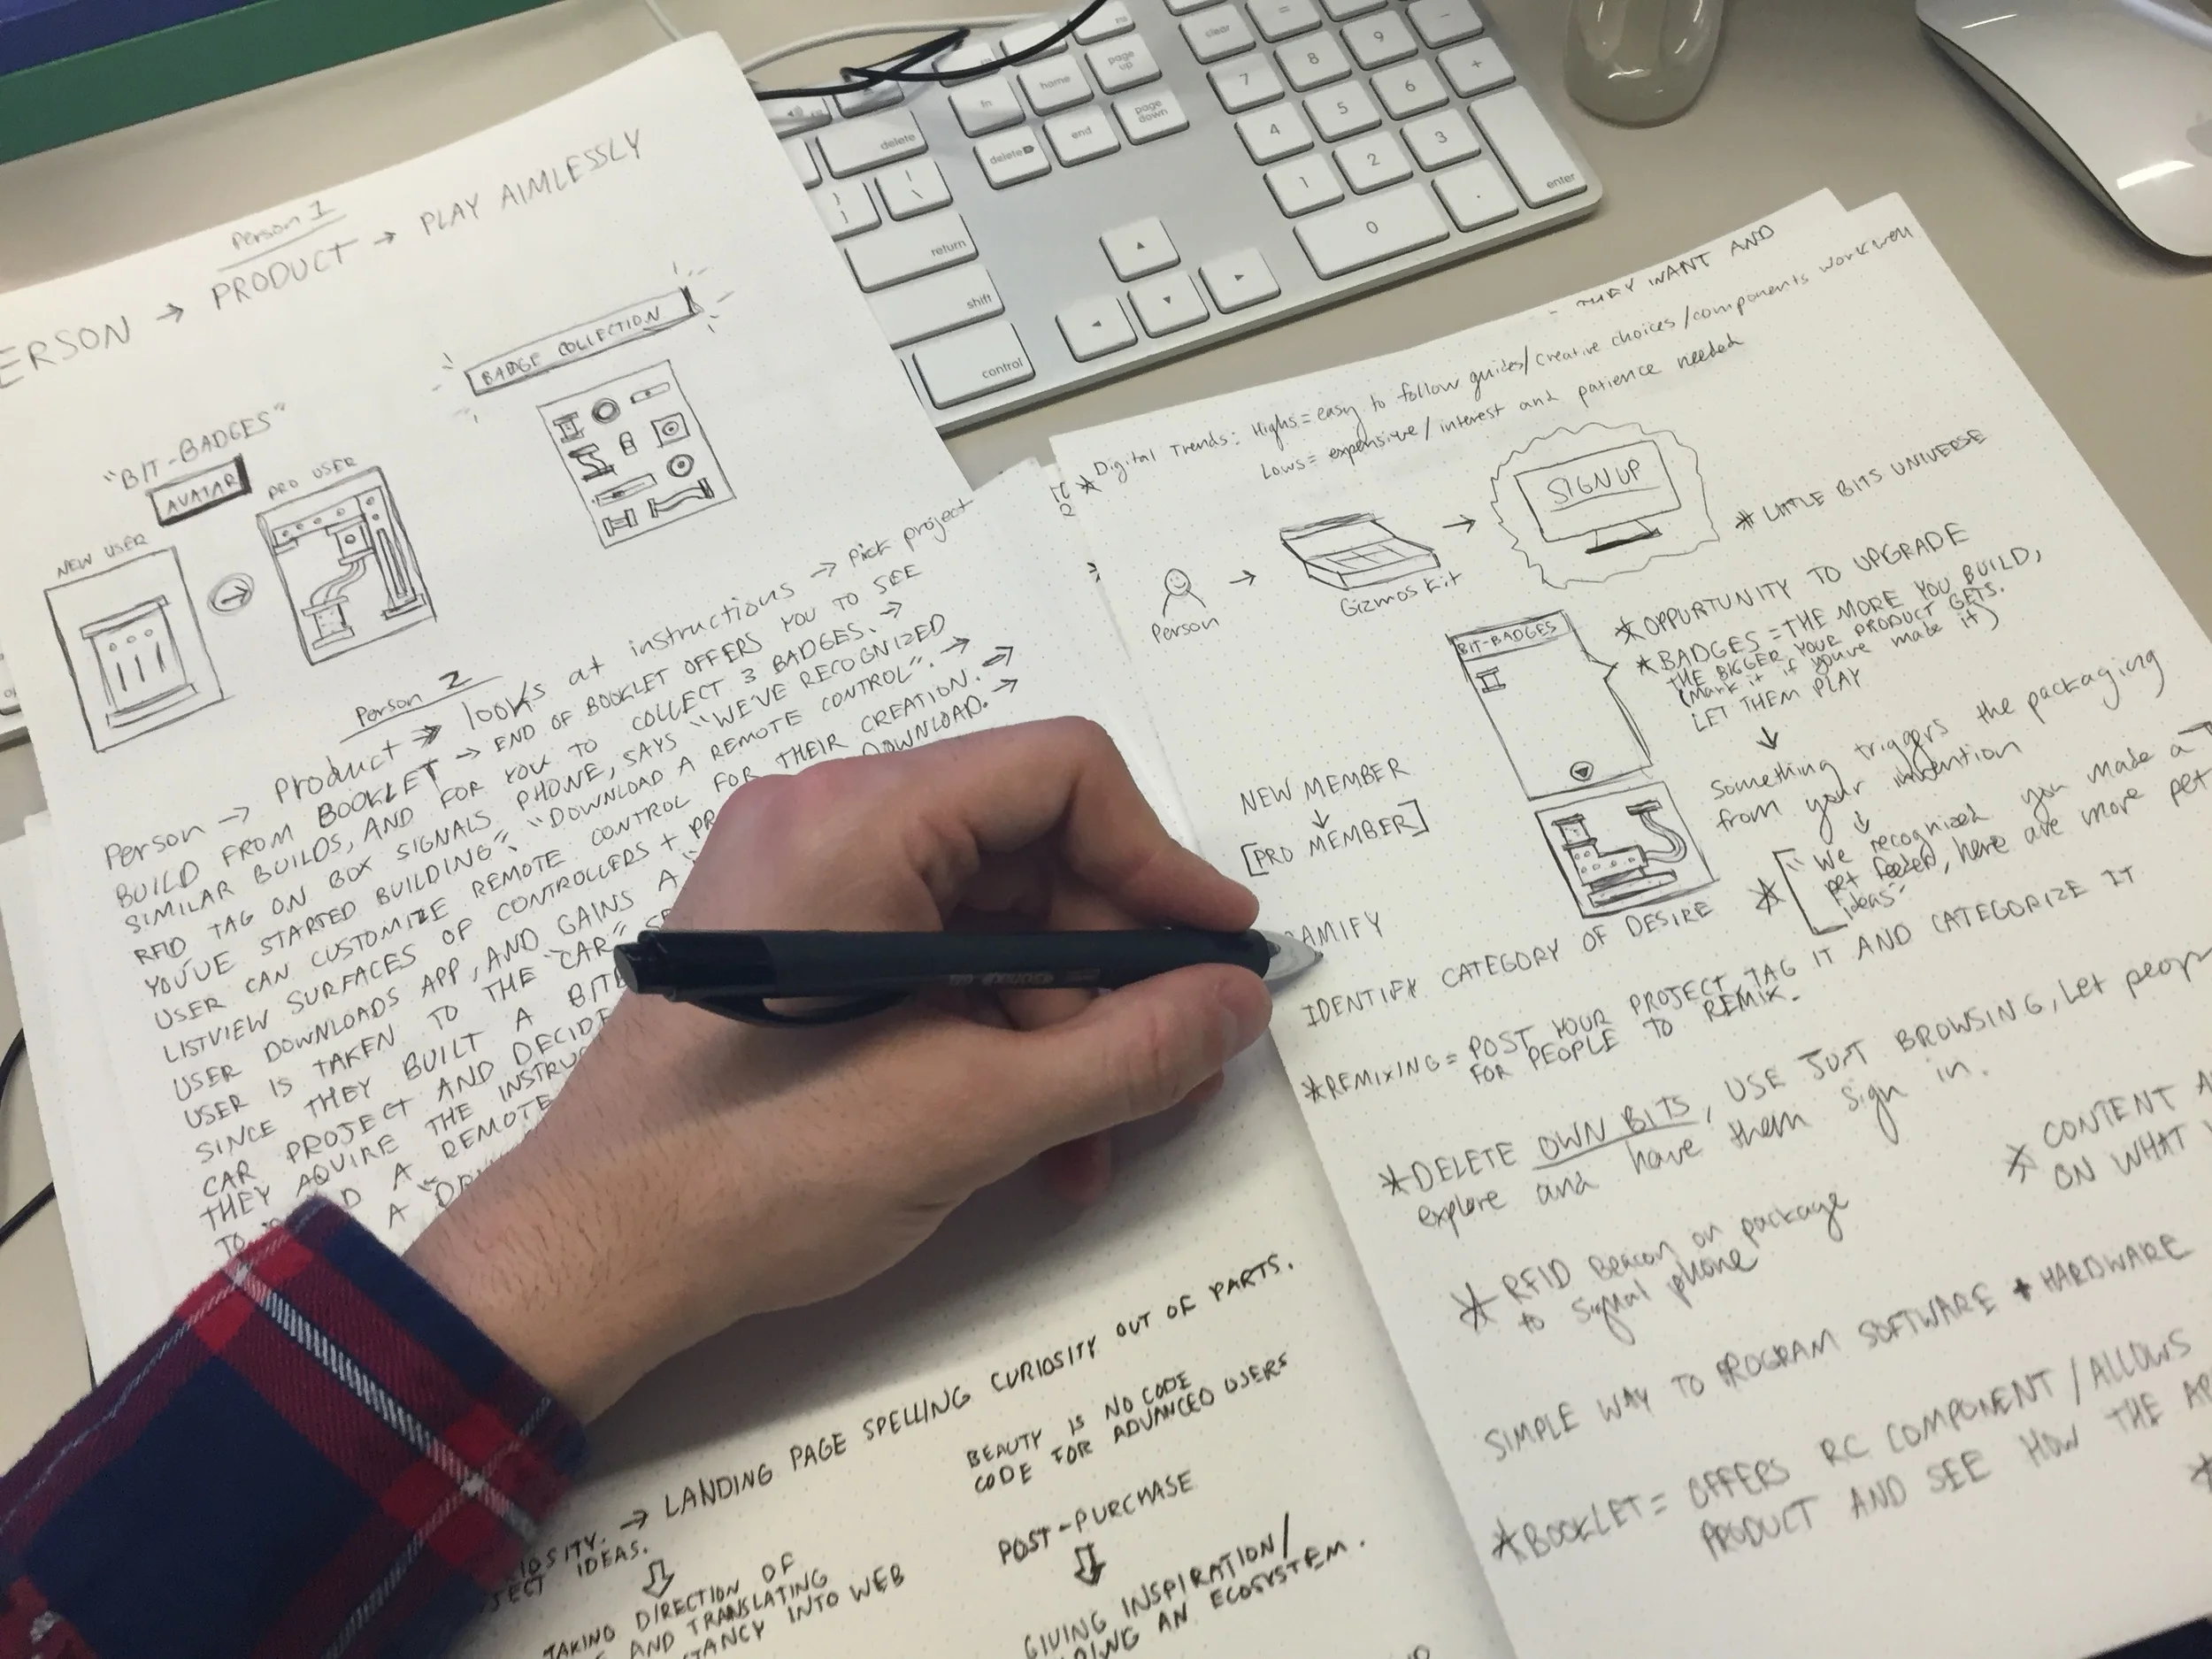 Person 1
PRODUCT → PLAY AIMLESSLY
"BIT-BADGES"
AVATAR
NEW USER
PRO USER
BADGE COLLECTION
Person 2
Person → Product → looks at instructions → pick project
BUILD FROM BOOKLET → END OF BOOKLET OFFERS YOU TO SEE
SIMILAR BUILDS, AND FOR YOU TO COLLECT 3 BADGES. →
RFID TAG ON BOX SIGNALS PHONE, SAYS "WE'VE RECOGNIZED
YOU'VE STARTED BUILDING", "DOWNLOAD A REMOTE CONTROL". →
USER CAN CUSTOMIZE REMOTE CONTROL FOR THEIR CREATION. →
LISTVIEW SURFACES OF CONTROLLERS + DOWNLOAD. →
USER DOWNLOADS APP, AND GAINS A
USER IS TAKEN TO THE "CAR"
SINCE THEY BUILT A
CAR PROJECT AND
THEY AQUIRE THE
TO A REMOTE
A
LANDING PAGE SPELLING CURIOSITY OUT OF PARTS.
IDEAS.
TAKING DIRECTION OF
AND TRANSLATING
INTO WEB
BEAUTY IS NO CODE
CODE FOR ADVANCED USERS
POST-PURCHASE
GIVING INSPIRATION/
AN ECOSYSTEM.
- THEY WANT AND
* Digital Trends: Highs = easy to follow guides/creative choices/components work well
Lows = expensive/interest and patience needed
Person → Gizmos Kit → SIGN UP
* LITTLE BITS UNIVERSE
* OPPURTUNITY TO UPGRADE
* BADGES = THE MORE YOU BUILD,
THE BIGGER YOUR PRODUCT GETS.
(Mark it if you've made it)
LET THEM PLAY
BIT-BADGES
Something triggers the packaging
from your invention
"We recognized you made a
pet feeder, here are more pet
ideas"
NEW MEMBER
[PRO MEMBER]
IDENTIFY CATEGORY OF DESIRE
*REMIXING = POST YOUR PROJECT, TAG IT AND CATEGORIZE IT
FOR PEOPLE TO REMIX.
*DELETE OWN BITS, USE JUST BROWSING, Let
explore and have them sign in.
* CONTENT
ON WHAT
* RFID Beacon on package
to signal phone
SIMPLE WAY TO PROGRAM SOFTWARE + HARDWARE
*BOOKLET = OFFERS RC COMPONENT / ALLOWS
PRODUCT AND SEE HOW THE
clear
=
7
8
9
-
4
5
6
+
1
2
3
0
.
enter
fn
home
page up
delete
end
page down
delete
return
shift
control